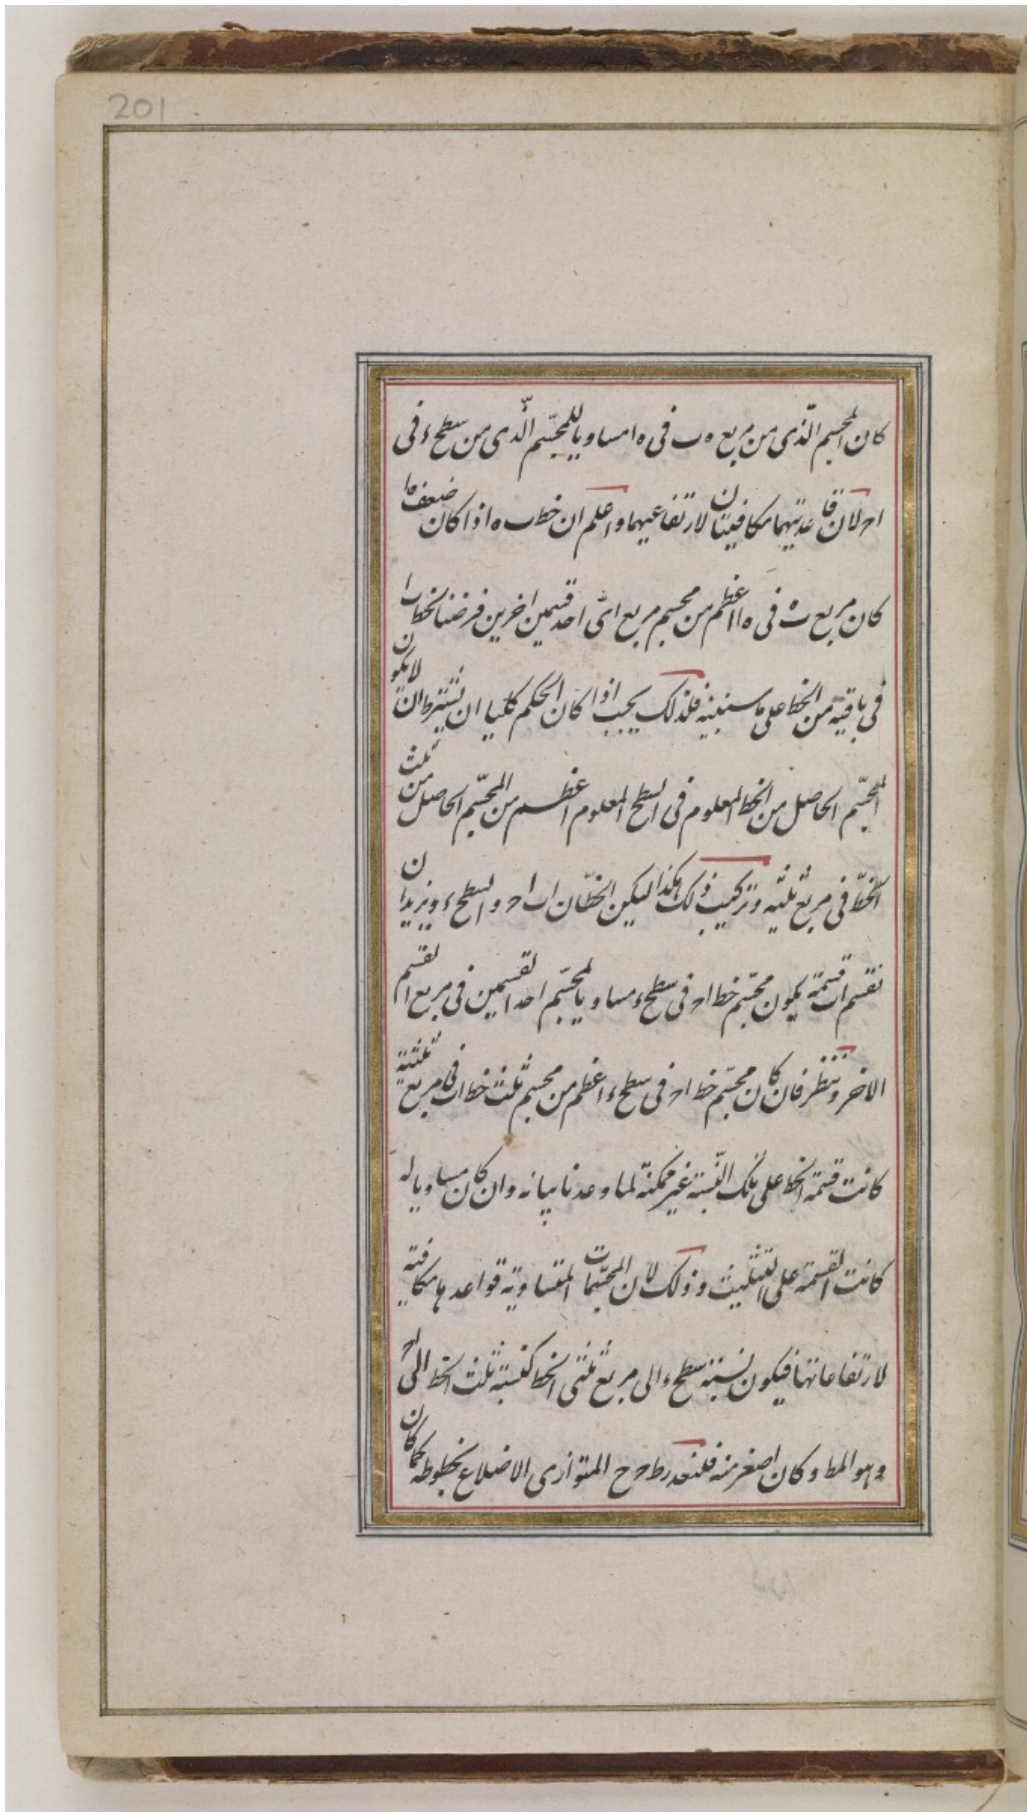 201
كان المجسم الّذى من مربع ه ب فى ه ا مساويا للمجسّم الّذى من سطح ء فى
ا ح لان قاعدتيهما مكافيتان لارتفاعيهما واعلم ان خط ب ه اذا كان ضعف ه ا
كان مربع ب ه فى ه ا اعظم من مجسم مربع اىّ احد قسمين اخرين فرضنا لخط ب ا
فى باقيه من الخط على ما سنبينه فلذلك يجب اذا كان الحكم كليا ان نشترط ان لا يكون
المجسّم الحاصل من الخط المعلوم فى السطح المعلوم اعظم من المجسّم الحاصل من ثلث
الخطّ فى مربع ثلثيه وتركيب ذلك هكذا ليكن الخطّان ا ب ا ح والسطح ء ونريد ان
نقسم ا ب قسمة يكون مجسّم خط ا ح فى سطح ء مساويا لمجسّم احد القسمين فى مربع القسم
الاخر وننظر فان كان مجسّم خط ا ح فى سطح ء اعظم من مجسم ثلث خط ا ب فى مربع ثلثيه
كانت قسمة الخط على تلك النّسبة غير ممكنة لما وعدنا بيانه وان كان مساويا له
كانت القسمة على التثليث وذلك لان المجسّمات المتساوية قواعدها مكافية
لارتفاعاتها فيكون نسبة سطح ء الى مربع ثلثى الخط كنسبة ثلث الخط الى ا ح
وهو المط وكان اصغر منه فلنعد ر ط ح ح المتوازى الاضلاع بخطوطه كما كان